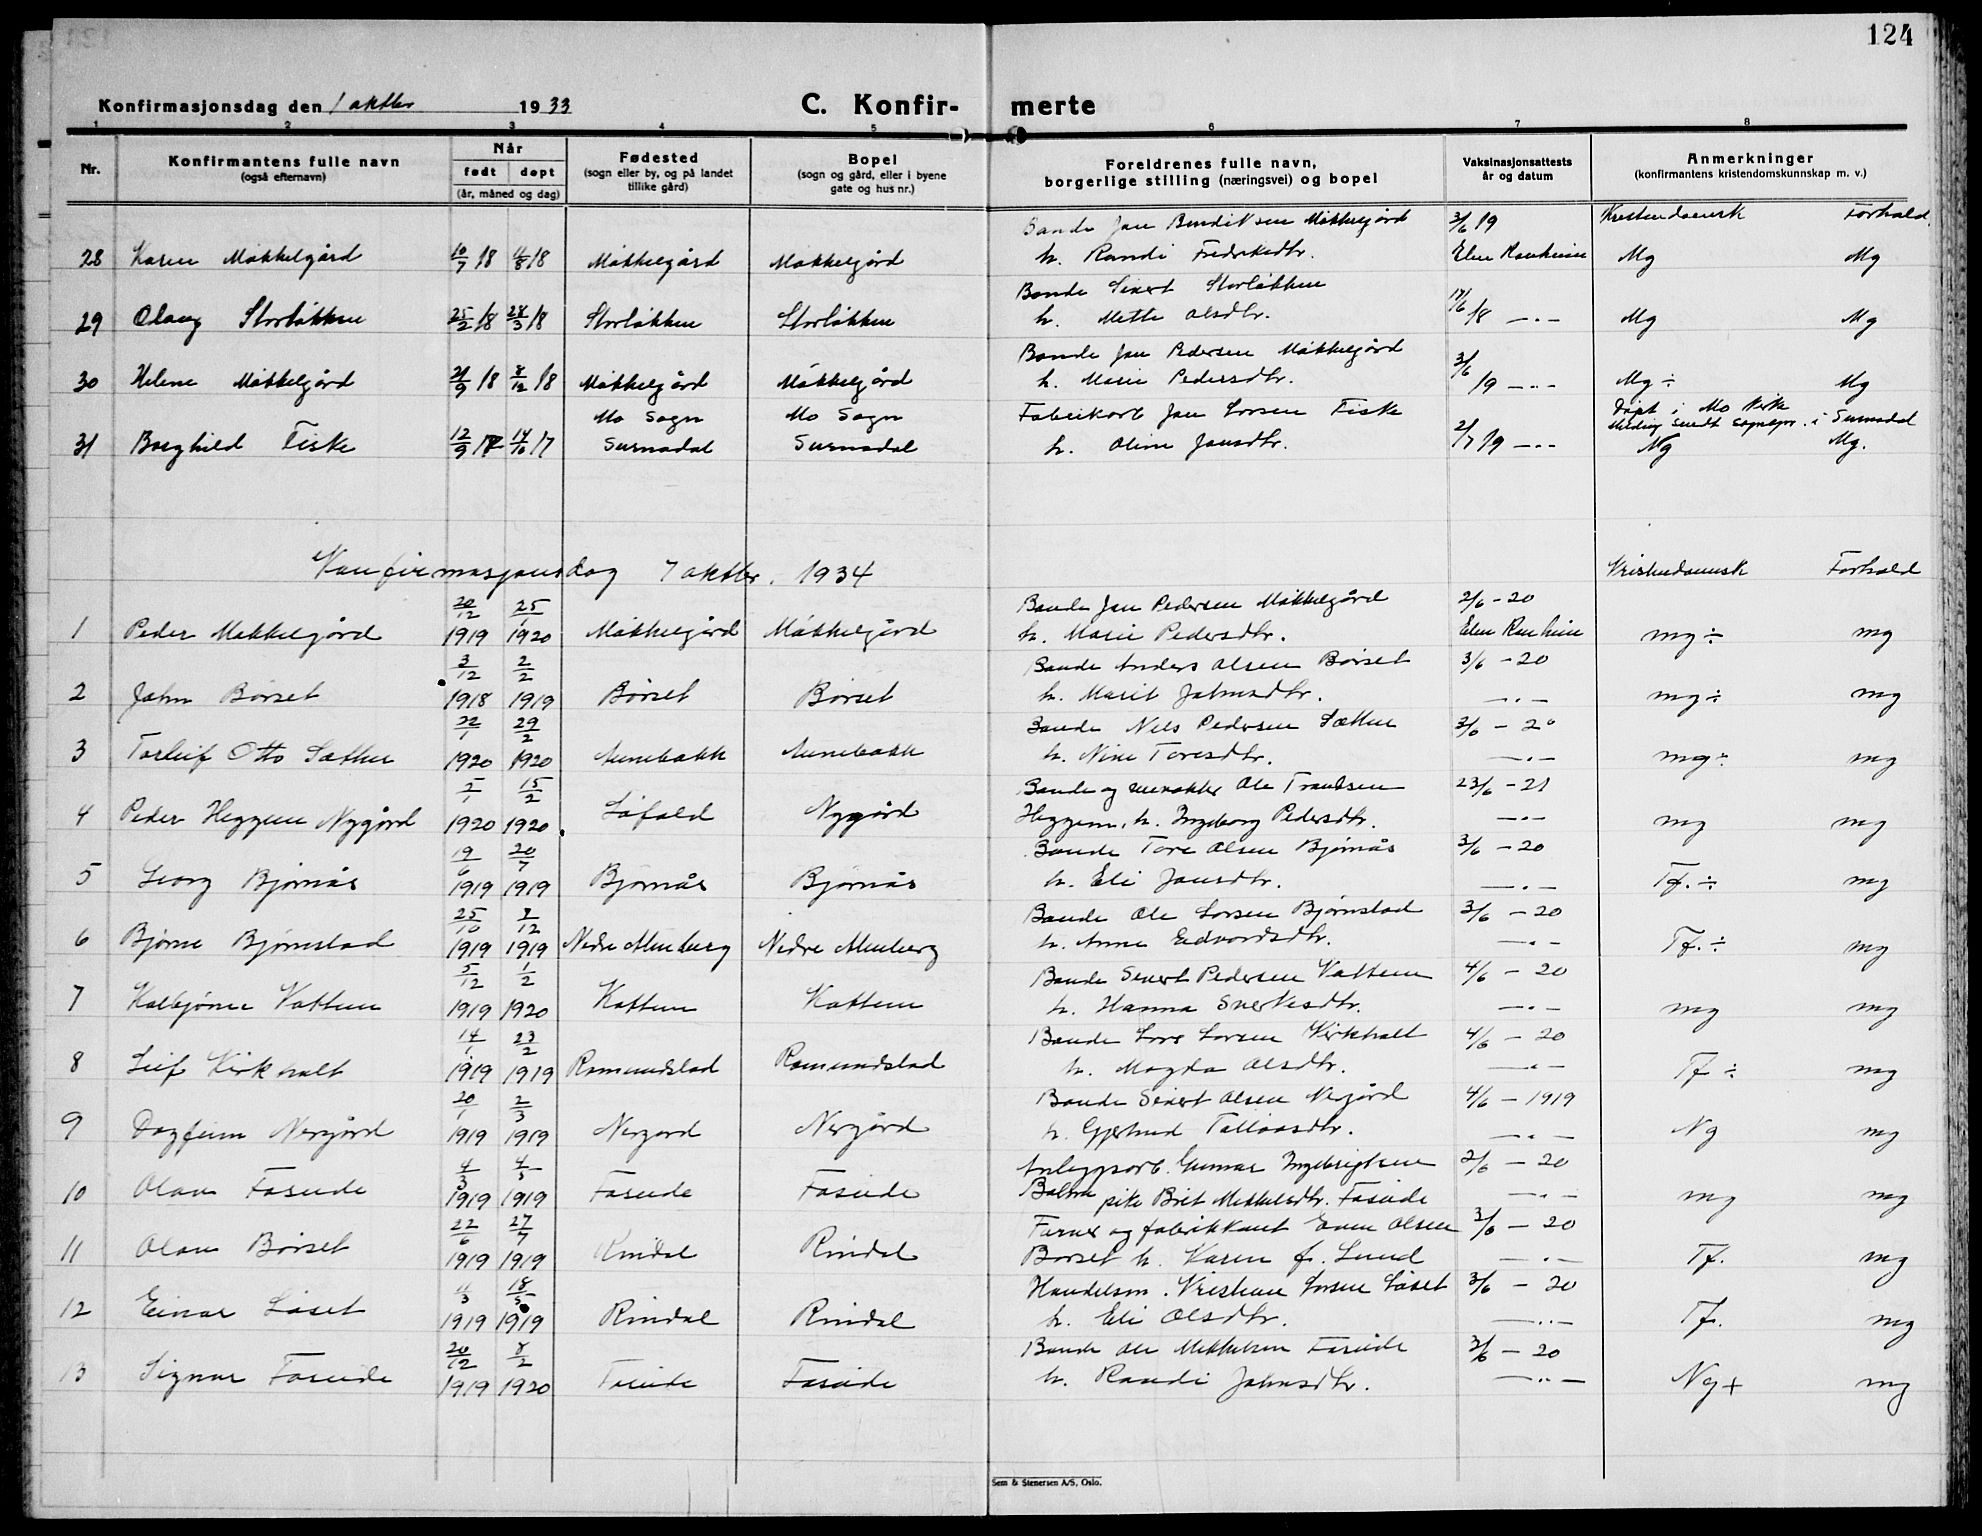 124
Konfirmasjonsdag den 1 oktbr 1933 C. Konfir- merte
1 2 3 4 5 6 7 8
Nr. Konfirmantens fulle navn (også efternavn) Når født døpt (år, måned og dag) Fødested (sogn eller by, og på landet tillike gård) Bopel (sogn og gård, eller i byene gate og hus nr.) Foreldrenes fulle navn, borgerlige stilling (næringsvei) og bopel Vaksinasjonsattests år og datum Anmerkninger (konfirmantens kristendomskunnskap m. v.)
Bonde Jon Bendiksen Møkkelgård 3/6 19 Kristendomsk Forhold
28 Karen Møkkelgård 10/7 18 11/8 18 Møkkelgård Møkkelgård h. Randi Fredriksdtr. Elen Ranheim Mg Mg
Bonde Sivert Storløkken 17/6
29 Olaug Storløkken 25/2 18 28/3 18 Storløkken Storløkken h. Mette Olsdtr. 18 —.— Mg Mg
Bonde Jon Pedersen Møkkelgård 3/6
30 Helene Møkkelgård 21/9 18 8/12 18 Møkkelgård Møkkelgård h. Marie Pedersdtr. 19 —..— Mg ÷ Mg
Mo Sogn Mo Sogn Fabrikarb Jon Larsen Fiske Døpt i Mo kirke
Melding sendt sognepr. i Surnadal
31 Borghild Fiske 12/9 17 14/10 17 Surnadal Surnadal h. Oline Jonsdtr. 2/7 19 —..— Ng Mg.
Konfirmasjonsdag 7 oktbr. 1934 Kristendomsk Forhold
20/12 25/1 Bonde Jon Pedersen Møkkelgård 2/6 - 20
1 Peder Møkkelgård 1919 1920 Møkkelgård Møkkelgård h. Marie Pedersdtr. Elen Ranheim mg ÷ mg
3/12 2/2 Bonde Anders Olsen Børset 3/6 - 20
2 John Børset 1918 1919 Børset Børset h. Marit Johnsdtr. —.— mg ÷ mg
22/1 29/2 Bonde Nils Pedersen Sæther 3/6 - 20
3 Torleif Otto Sæther 1920 1920 Aunebakk Aunebakk h. Nine Toresdtr. —.— mg ÷ mg
5/1 15/2 Bonde og Ole Trondsen 23/6 - 21
4 Peder Heggem Nygård 1920 1920 Løfald Nygård Heggem, h. Ingeborg Pedersdtr. —.— mg mg
19/6 20/7 Bonde Tore Olsen Bjørnås 3/6 - 20
5 Georg Bjørnås 1919 1919 Bjørnås Bjørnås h. Eli Jonsdtr. —.— Tf. ÷ mg
25/10 7/12 Bonde Ole Larsen Bjørnstad 3/6 - 20
6 Bjørne Bjørnstad 1919 1919 Nedre Almberg Nedre Almberg h. Anne Edvardsdtr. —.— Tf. ÷ mg
5/12 1/2 Bonde Sivert Pedersen Kattem 4/6 - 20
7 Kolbjørn Kattem 1919 1920 Kattem Kattem h. Hanna Sverkesdtr. —.— mg mg
14/1 23/2 Bonde Lars Larsen Kirkholt 4/6 - 20
8 Leif Kirkholt 1919 1919 Romundstad Romundstad h. Magda Olsdtr. —.— Tf ÷ mg
20/1 2/3 Bonde Sivert Olsen Nergård 4/6 - 1919
9 Dagfinn Nergård 1919 1919 Nergård Nergård h. Gjertrud Tolloasdtr. —.— Ng mg
4/3 4/5 Anleggsarb. Gunnar Ingebrigtsen 2/6 - 20
10 Olav Foseide 1919 1919 Foseide Foseide pike Brit Mikkelsdtr. Foseide —.— mg mg
22/6 27/7 og fabrikkant Even Olsen 3/6 - 20
11 Olav Børset 1919 1919 Rindal Rindal Børset h. Karen f. Lund —.— Tf. mg
4/3 18/5 Handelsm. Kristian Larsen Løset 3/6 - 20
12 Einar Løset 1919 1919 Rindal Rindal h. Eli Olsdtr. —..— Tf. mg
20/12 8/2 Bonde Ole Mikkelsen Foseide 3/6 - 20
13 Signar Foseide 1919 1920 Foseide Foseide h. Randi Johnsdtr. —..— Ng + mg
Sem & Stenersen A/S, Oslo.